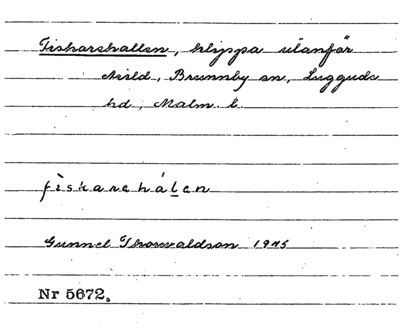 Fiskarehallen, klippa utanför
Arild, Brunnby sn, Luggude
hd, Malm. l.
fìskarehálen
Gunnel Thorwaldson 1945
Nr 5672.